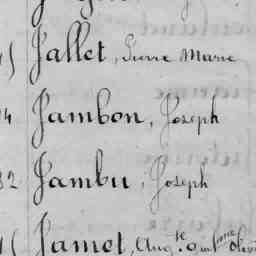 Jallet, Pierre Marie
Jambon, Joseph
Jambu, Joseph
Jamet, Aug.te